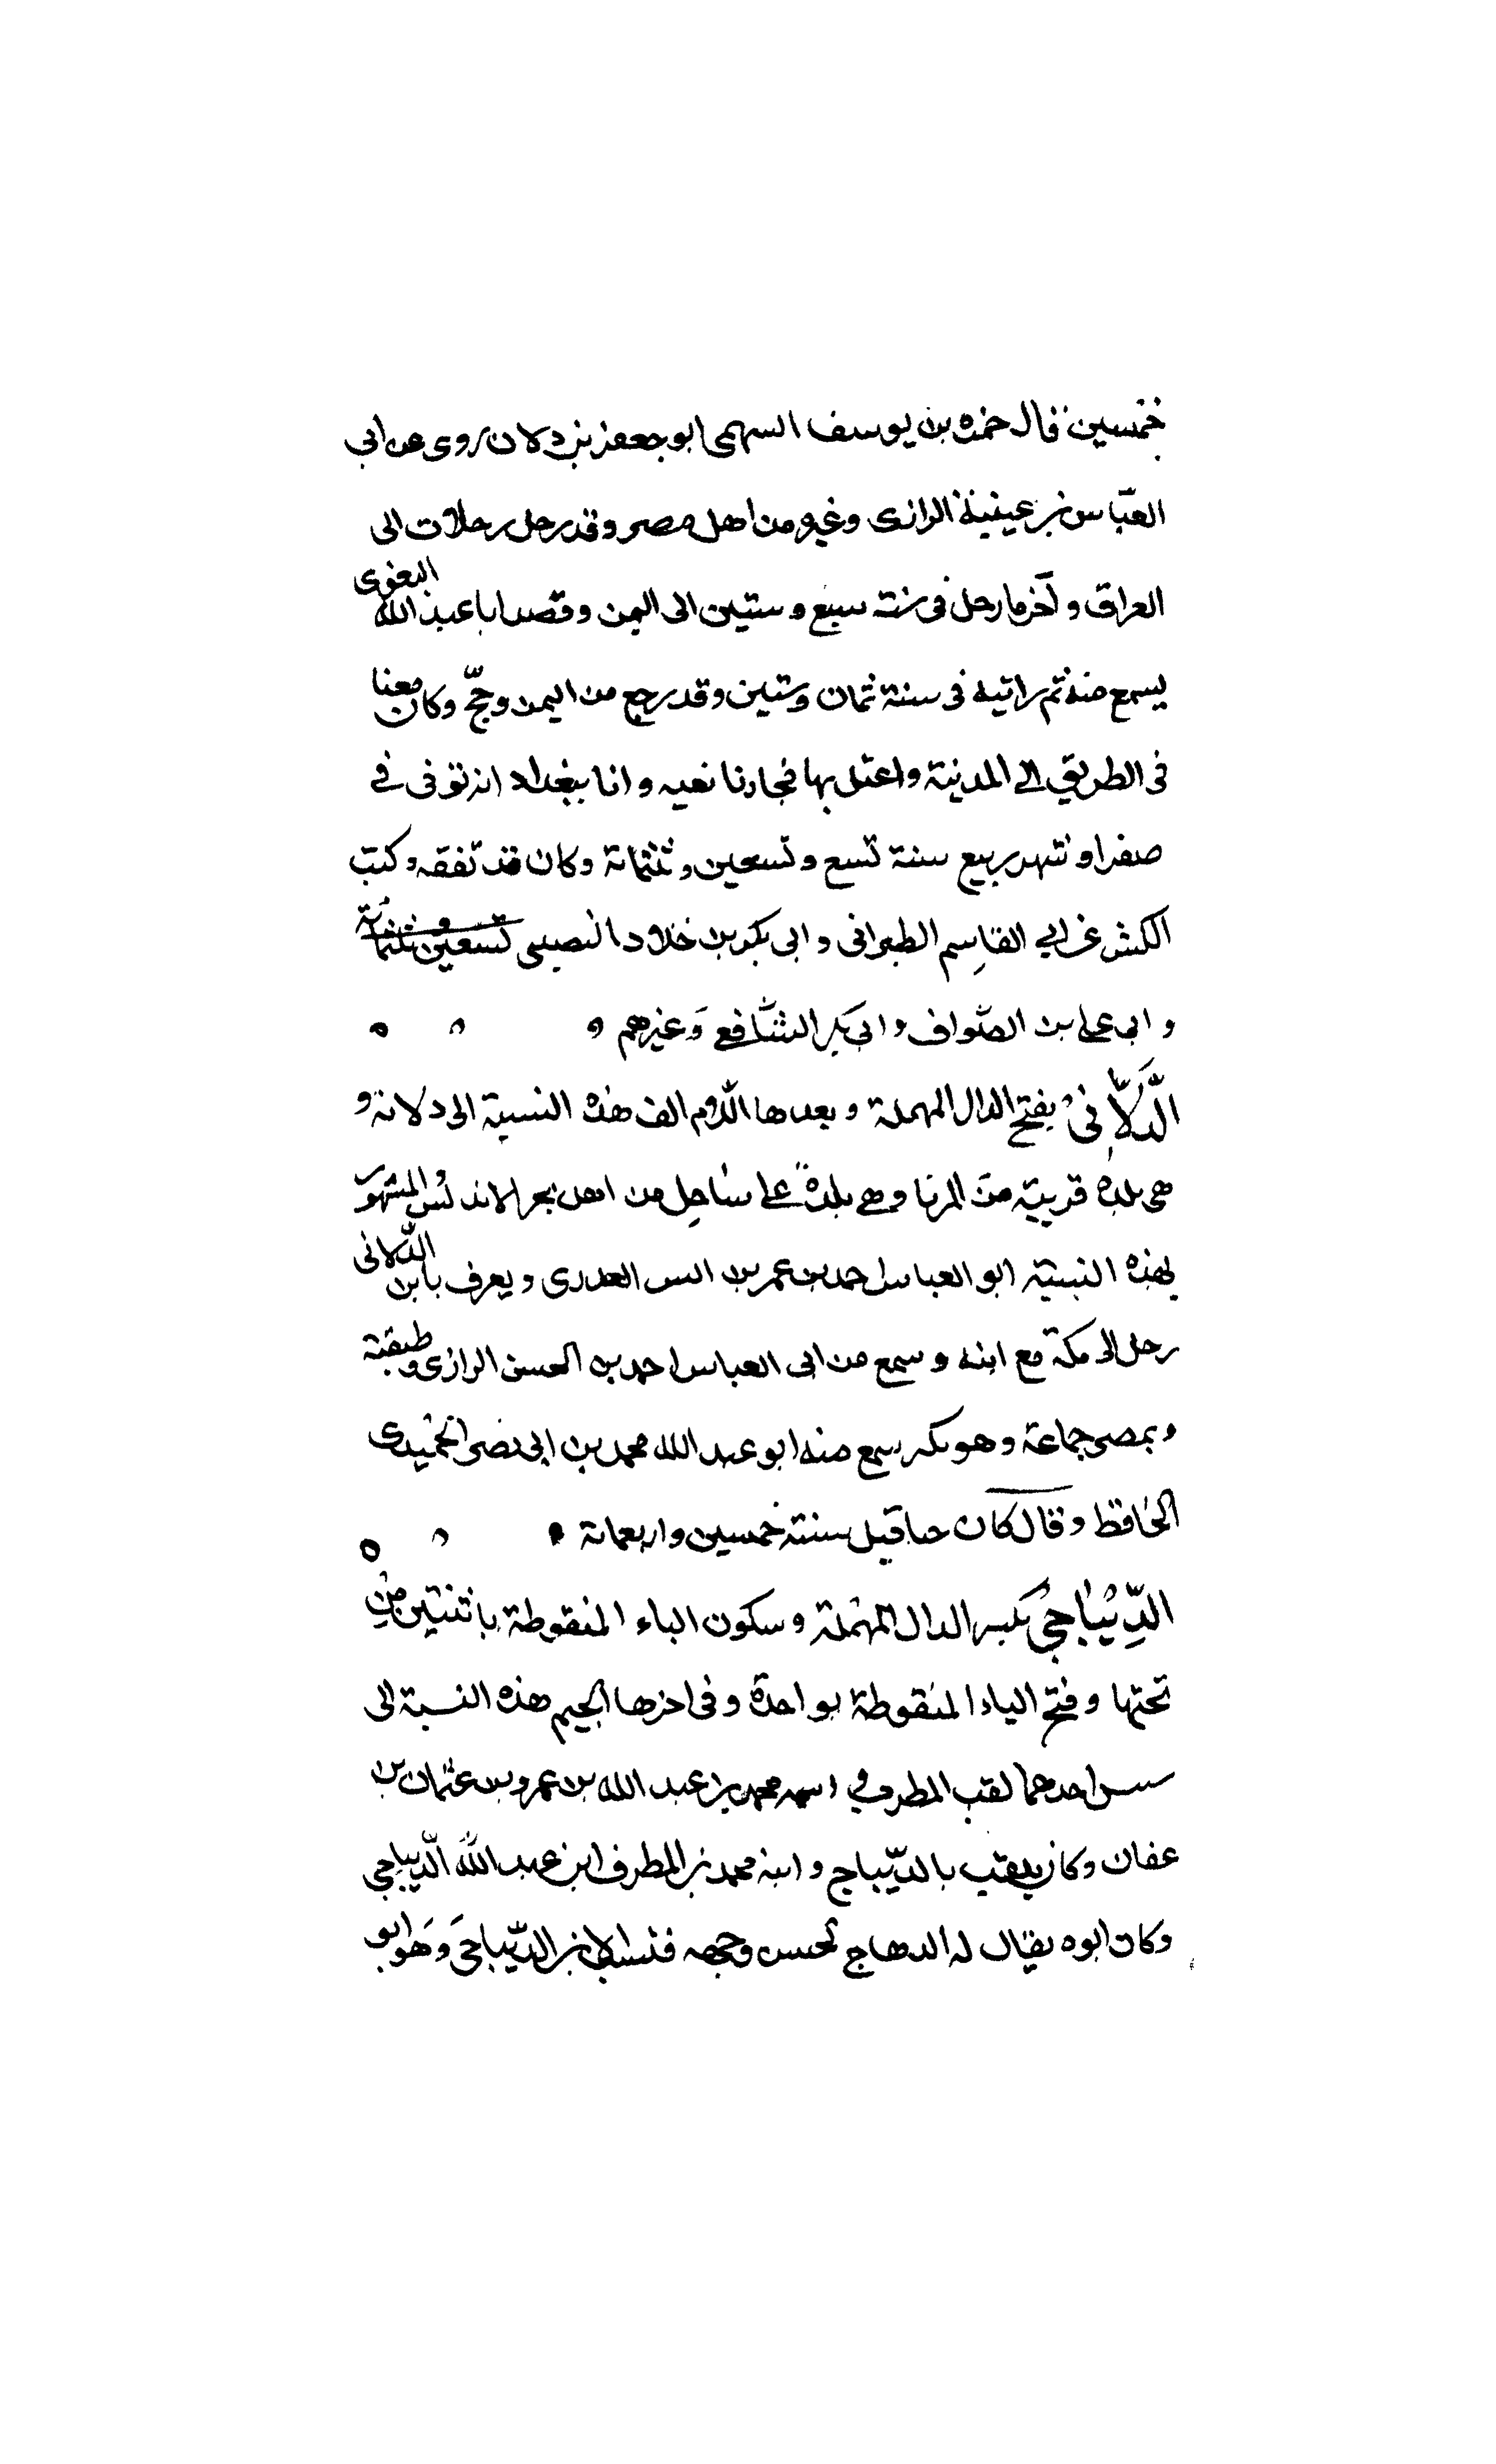 خمسين قال حمزة بن يوسف السهمى ابو جعفر بن دلان روى عن ابي
العبّاس بن عيينة الرازى وغيره من اهل مصر وقد رحل رحلات الى
العراق و آخر ما رحل فى سنة سبع و ستين الى اليمن و قصد ابا عبد الله البغوى
يسمع منه ثم راتيه فى سنة ثمان وستين وقد رجع من اليمن وحجّ وكان معنا
فى الطريق الى المدينة واعتل بها فجاءنا نعيه وانا ببغداد انه توفى في
صفر او شهر ربيع سنة تسع و تسعين و ثلثمائة وكان قد تفقه وكتب
الكثير عن ابي القاسم الطبرانى و ابى بكر بن خلاد النصيبى تسعين وثلثمائة
و ابى على بن الصّواف و ابى بكر الشّافعي وغيرهم
الدَّلاّنِىُّ بفتح الدال المهملة و بعدها اللام الف هذه النسبة الى دلانة و
هى بلدة قريبة من المريا وهي بلدة على ساحل من بحر الاندلس والمشهور
بهذه النسبة ابو العباس احمد بن عمر بن انس العدرى ويعرف بابن الدّلانى
رحل الى مكة مع ابنه وسمع من ابى العباس احمد بن الحسن الرازى وطبقته
وبمصر جماعة وهو بمكه سمع منه ابو عبد الله محمد بن ابى نصر الحميدى
الحافظ وقال كان حيا قبل سنة خمسين واربعمائة
الدِّيْبَاجِىُّ بكسر الدال المهملة و سكون الياء المنقوطة باثنتين من
تحتها وفتح الباء المنقوطة بواحدة وفى اخرها الجيم هذه النسبة الى
احدهما لقب المطرف واسمه محمد بن عبد الله بن عمرو بن عثمان بن
عفان وكان يلقب بالدّيباج وابنه محمد بن المطرف ابن عبد الله الدّيباجي
وكان ابوه يقال له الديباج لحسن وجهه فنسب الابن الدّيباجى وهو ابو